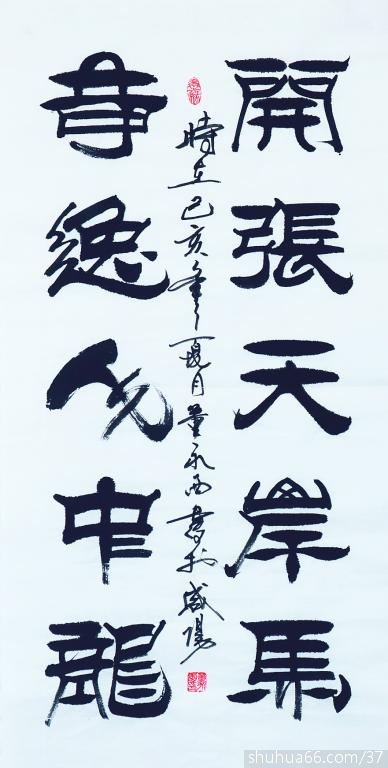 開張天岸馬
奇逸人中龍
時在己亥年夏月董西書於咸陽
shuhua66.com/37